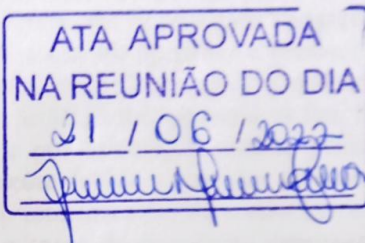 ATA APROVADA
NA REUNIÃO DO DIA
21 / 06 / 2022